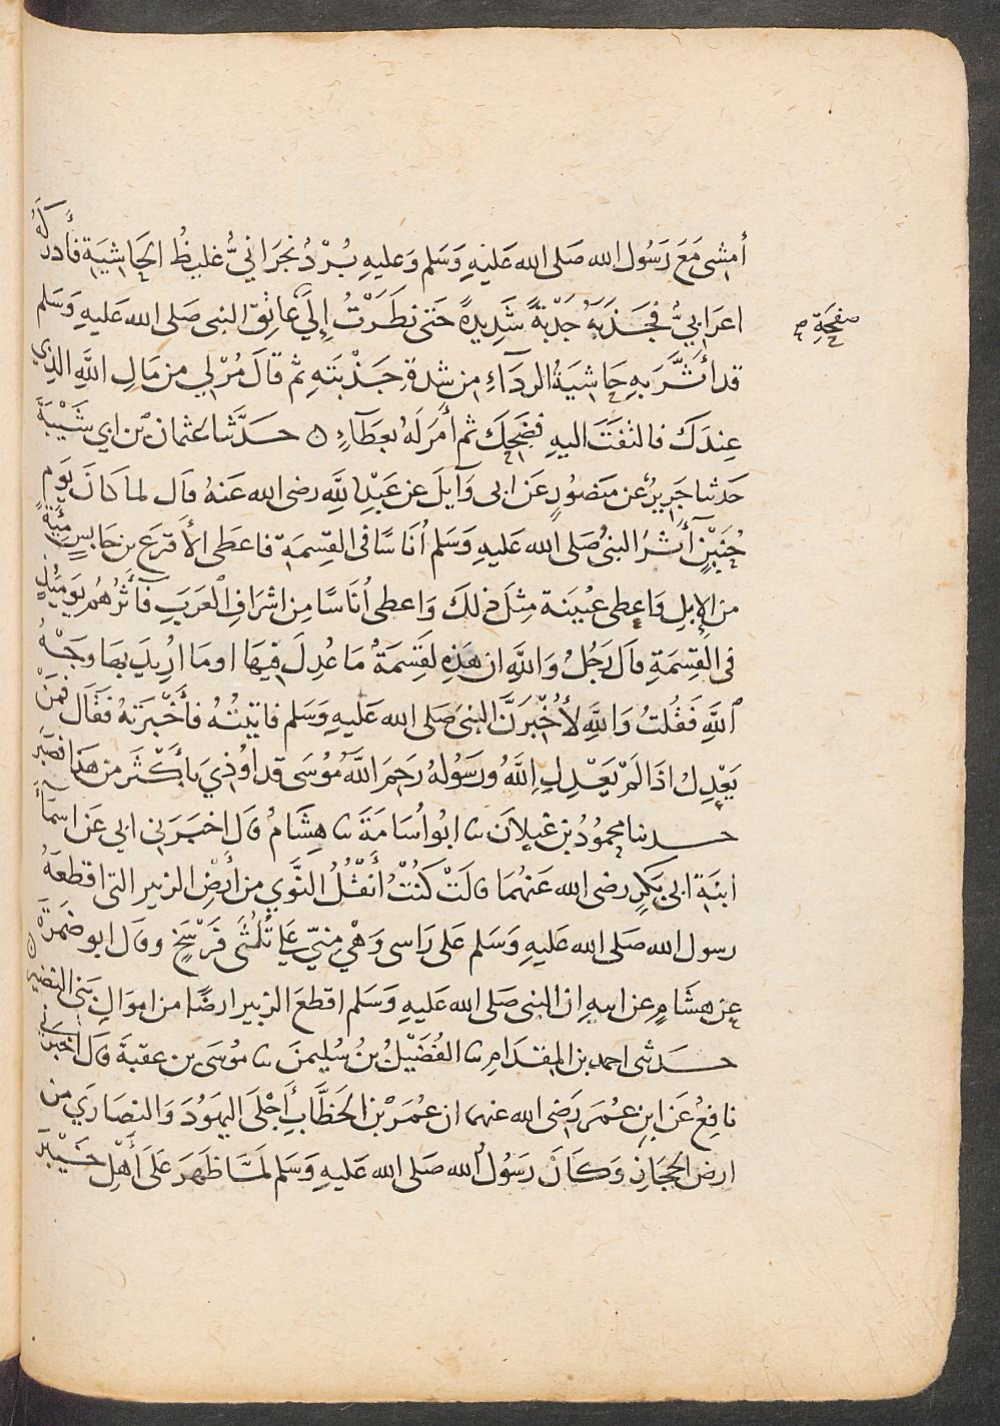 أمشى مَعَ رَسُول الله صَلى الله عَليهِ وَسَلم وَعليهِ بُرْدٌ نجرَانيٌّ غليظُ الحَاشِيَةِ فأدركَهُ
اعرَابيٌّ فجَذبَهُ جذبَةً شَدِيدةً حَتى نظَرْتُ إلَى عَاتِقِ النبى صَلى الله عَليهِ وَسَلم
صفحَةِ
قد أثَّرَ بهِ حَاشِيَةُ الردَآءِ مِن شِدةِ جَذبَتهِ ثم قالَ مُرْ لِي مِن مَالِ اللَّهِ الذِي
عِندَكَ فالتفَتَ اليهِ فضَحِكَ ثم أمَرَ لَهُ بعَطَآءٍ ه حَدَّثنا عثمان بن ابي شَيْبَةَ
حَدثنا جَرِيرٌ عن مَنصُورٍ عَن ابى وَآيلَ عن عَبْدِ اللَّهِ رضى الله عَنهُ قال لما كانَ يَومَ
حُنَيْنٍ آثَرَ النبىُ صَلى الله عَليهِ وَسَلم أُنَاسًا فى القِسمَةِ فاعطَى الأقرَعَ بن حَابسٍ مِئَةً
من الإبِلِ وَاعطى عُيينَة مِثلَ ذلكَ وَاعطى أُنَاسًا مِن اشرَافِ العَرَبِ فآثَرَهُم يَومَئِذٍ
فى القِسْمَةِ قالَ رَجُلٌ وَاللَّهِ ان هَذِهِ لَقِسمَةٌ مَا عُدِلَ فِيهَا او مَا أُرِيدَ بهَا وَجْهُ
اللَّهِ فَقُلتُ وَاللَّهِ لأُخْبِرَنَّ النبىَ صَلى الله عَليهِ وَسَلم فاتيتُهُ فأخْبَرتهُ فقَالَ فمَنْ
يَعْدِلُ اذَا لَمْ يَعْدِلِ اللَّهُ ورَسُولُهُ رَحِمَ اللَّهُ مُوسَى قد اوُذِيَ بأكْثَرَ مِن هَذا فصَبَرَ
حدثنا محمُودُ بن غيلانَ ثنا ابُو اُسَامَةَ ثنا هِشَامٌ قال اخبَرَنِى ابي عَن اسمَآءَ
ابنَةِ ابى بَكرٍ رضى الله عَنهُمَا قالَتْ كنتُ أَنقُلُ النَّوي مِن أرْضِ الزبَيرِ التى اقطعَهُ
رسول الله صَلى الله عَليهِ وَسَلم عَلى رَاسى وَهْيَ مِنّى عَلى ثُلُثَى فَرْسَخٍ وقال ابو ضَمرَةَ
عَن هشَامٍ عن ابيهِ ان النبى صَلى الله عَليهِ وَسَلم اقطعَ الزبير ارضًا من اموَالِ بَنى النضِير ه
حَدثنى احمد بن المِقدَامِ ثنا الفُضَيْلُ بنُ سُليمنَ ثنا مُوسَى بن عقبَةَ قالَ اخبَرَنى
نافِعٌ عَن ابنِ عمَرَ رَضى الله عنهما ان عُمَرَ بْنَ الخطَّابِ أَجْلَى اليَهوُدَ وَالنصَارَي مِن
ارضِ الحِجَازِ وَكَانَ رسَوُلُ الله صَلى الله عَليهِ وَسَلم لَمَّا ظَهَرَ عَلَى أَهْلِ خَيْبَرَ